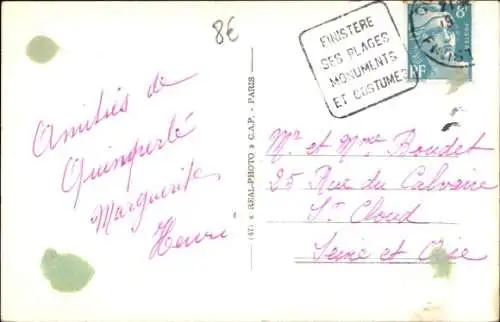 8€
FINISTERE
SES PLAGES
MONUMENTS
ET COSTUMES
8F
RF
Amitiés de
Quimperlé
Marguerite
Henri
(47) « REAL-PHOTO » C.A.P. - PARIS
Mr et Mme Boudet
25 Rue du Calvaire
St Cloud
Seine et Oise